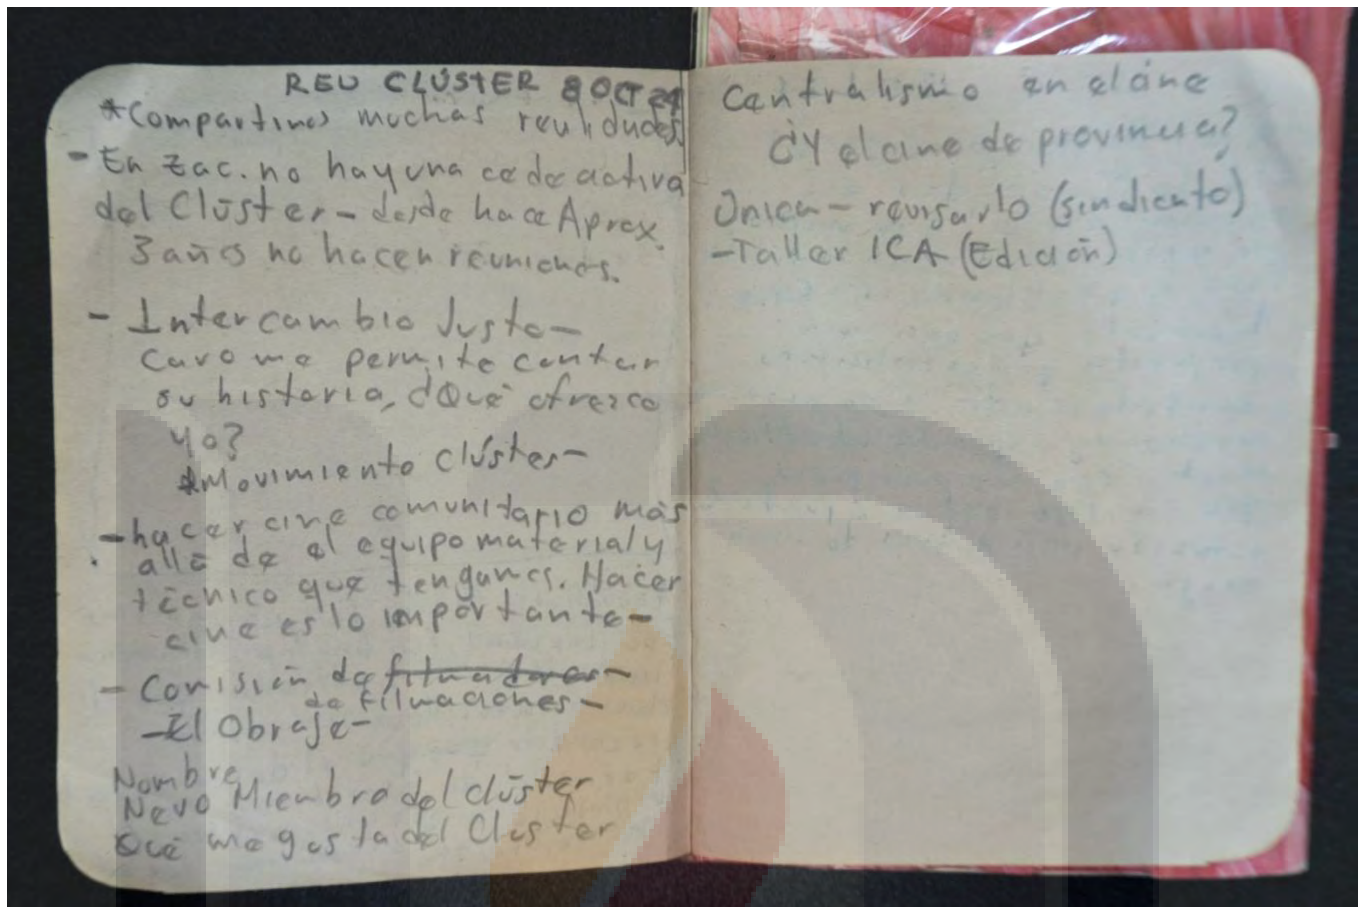 REU CLÚSTER 8 OCT 24
*Compartimos muchas realidades
- En Zac. no hay una cede activa
del Clúster - desde hace Aprox.
3 años no hacen reuniones.
- Intercambio Justo -
Cuvo me permite contar
su historia, ¿Qué ofrezco
yo?
*Movimiento clúster -
- hacer cine comunitario más
allá de el equipo material y
técnico que tengamos. Hacer
cine es lo importante -
- Comisión de filmadores -
de filmaciones -
- El Obraje -
Nombre
Nevo Miembro del clúster
Qué me gusta del Cluster
Centralismo en el cine
¿Y el cine de provincia?
Única - revisarlo (sindicato)
- Taller ICA (Edición)